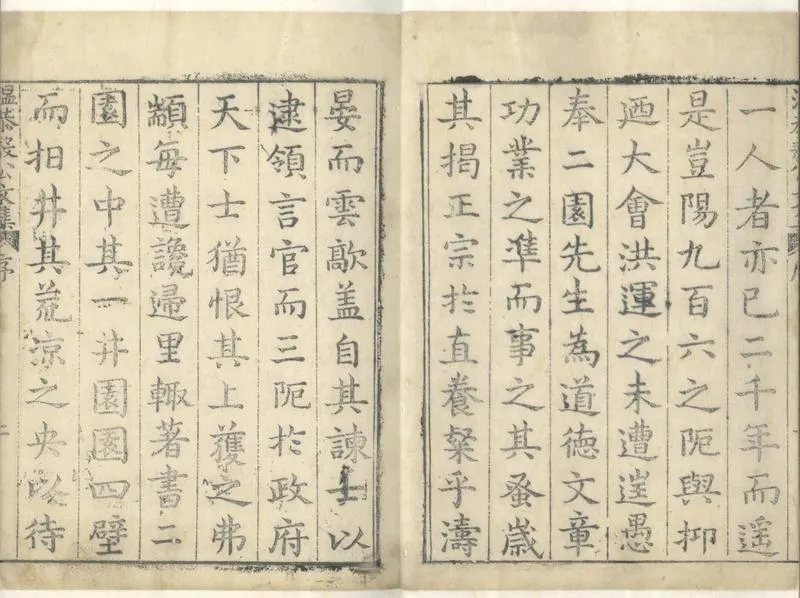 一人者亦已二千年而遥
是豈陽九百六之阨與抑
迺大會洪運之未遭愚
奉二園先生為道德文章
功業之凖而事之其蚤歲
其揭正宗於直養粲乎濤
晏而雲歊盖自其諫士以
逮領言官而三阨於政府
天下士猶恨其上獲之弗
顓每遭讒歸里輙著書二
園之中其一井園園四壁
而臼井其荒凉之央以待
溫恭毅公文集 序